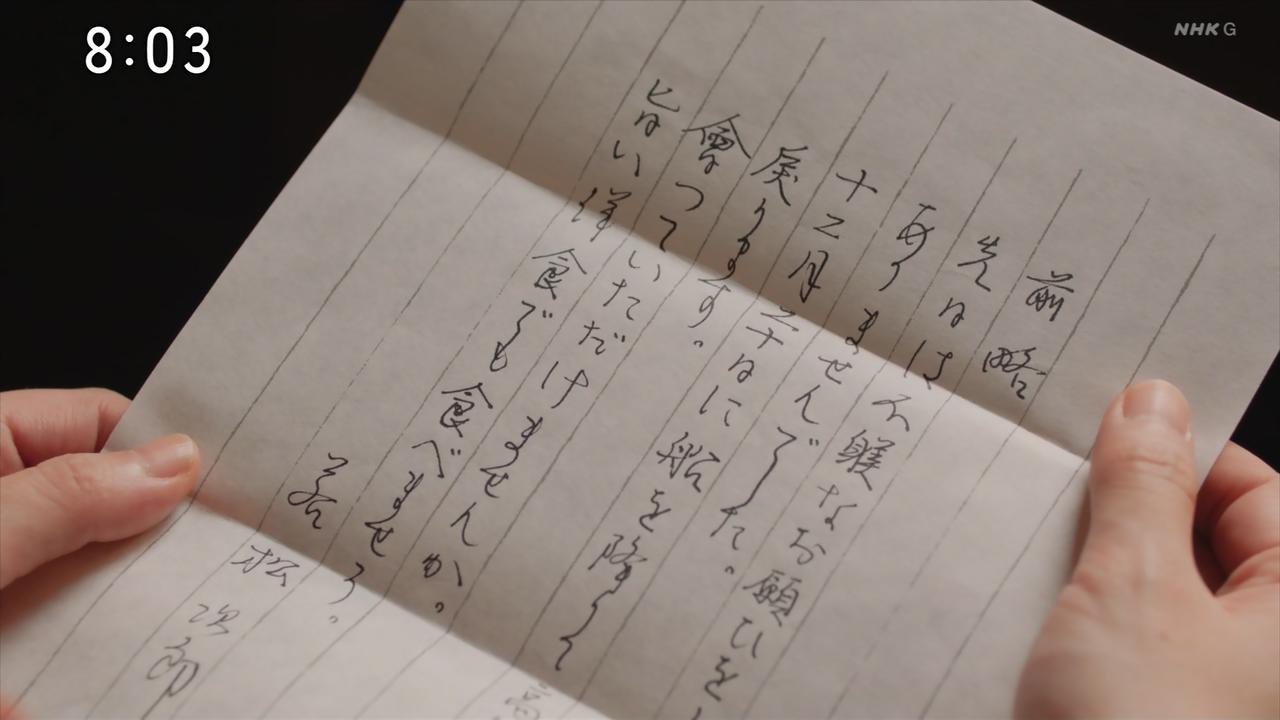 8:03
NHK G
前略
先日は不躾なお願ひをし
ありませんでした。
十二月廿日に船を降りて
戻ります。
會つていただけませんか。
旨い洋食でも食べませう。
若松次郎